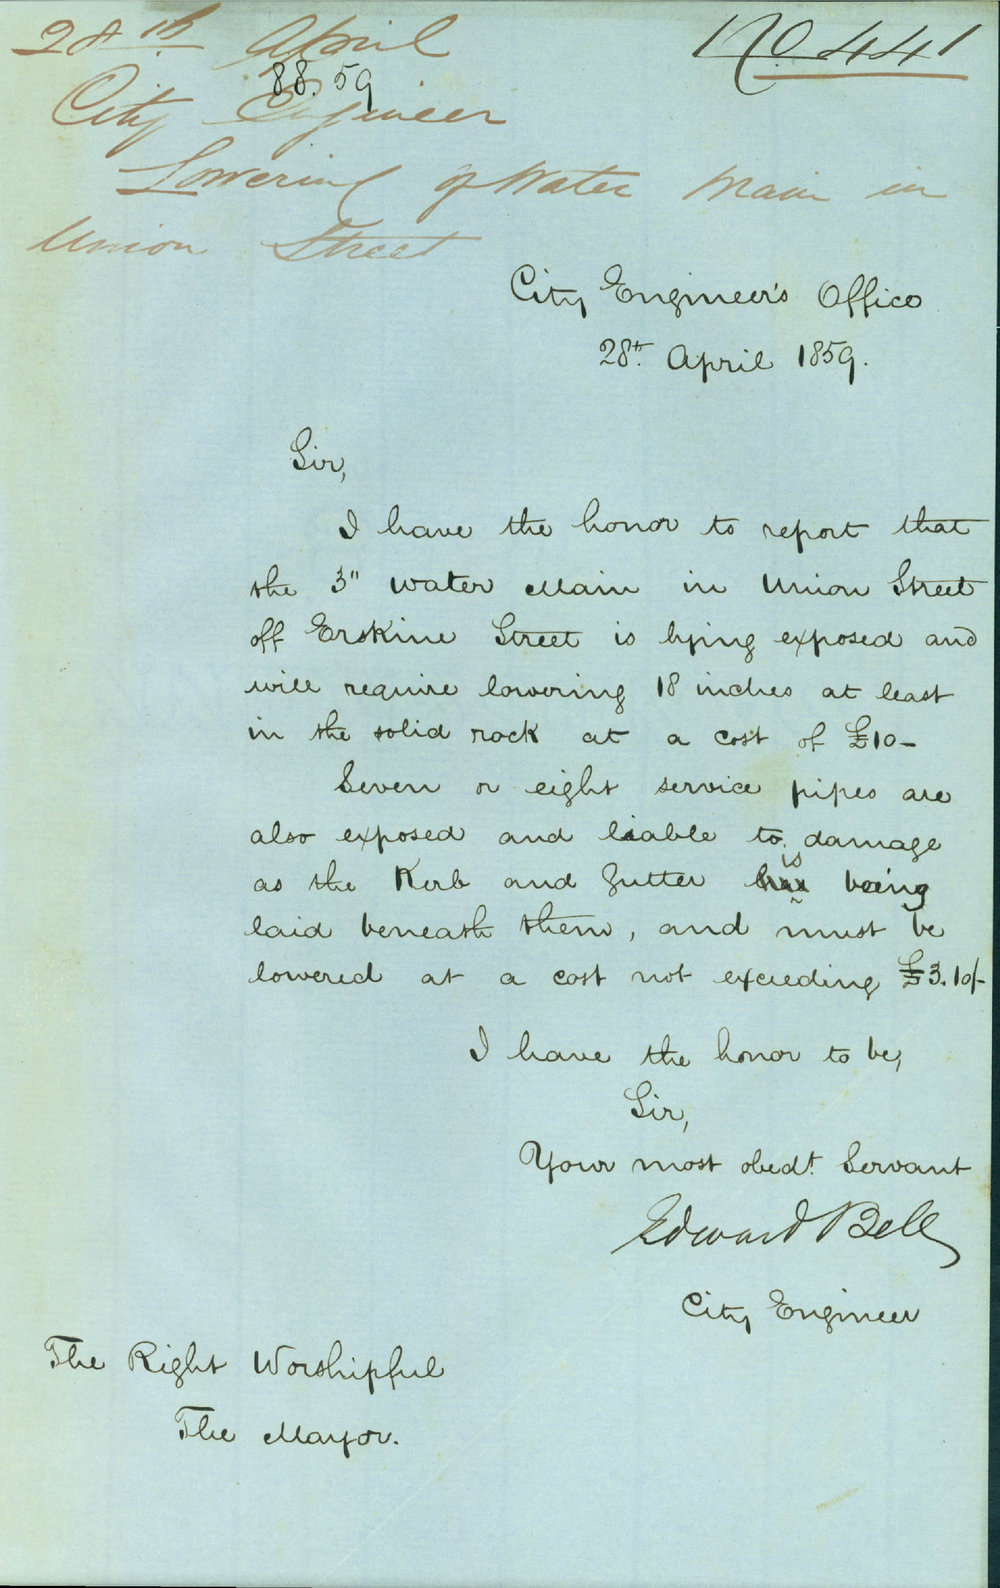 28th April
No. 441
88.59
City Engineer
Lowering of Water Main in
Union Street
City Engineer's Office
28th. April 1859.
Sir,
I have the honor to report that
the 3" Water Main in Union Street
off Erskine Street is lying exposed and
will require lowering 18 inches at least
in the solid rock at a cost of £10-
Seven or eight service pipes are
also exposed and liable to damage
as the Kerb and Gutter is being
laid beneath them, and must be
lowered at a cost not exceeding £3.10/-
I have the honor to be,
Sir,
Your most obedt. Servant
Edward Bell
City Engineer
The Right Worshipful
The Mayor.